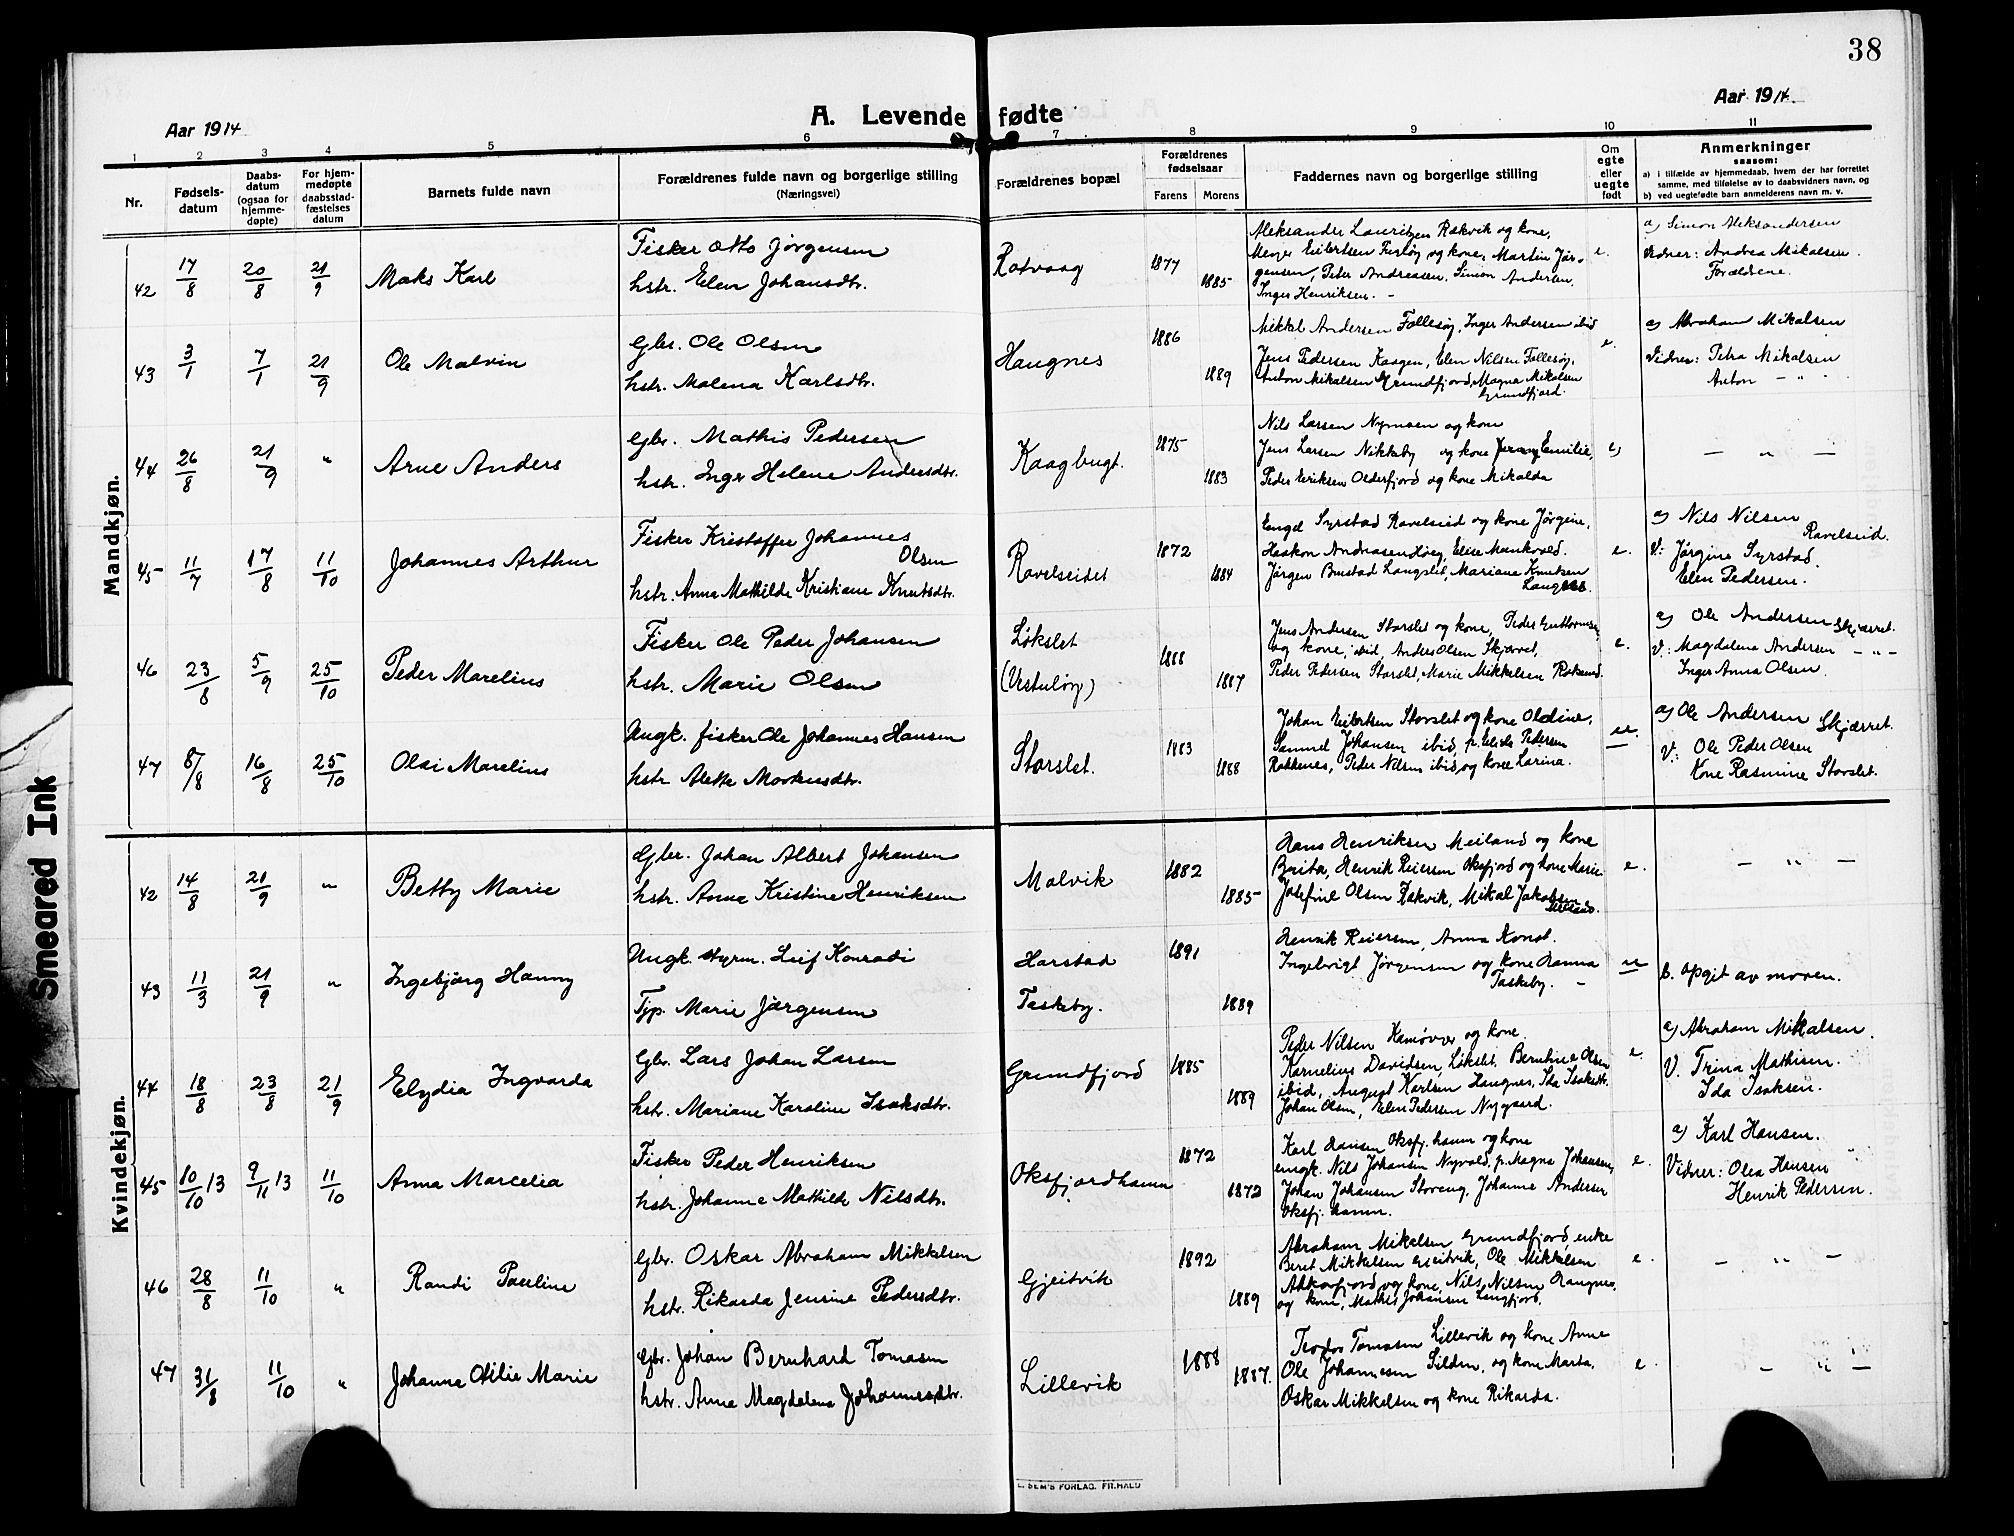 38
Aar 1914
A. Levende fødte
Aar 1914.
1 2 3 4 5 6 7 8 9 10 11
Nr.
Fødsels-
datum
Daabs-
datum
(ogsaa for
hjemme-
døpte)
For hjem-
medøpte
daabsstad-
fæstelses
datum
Barnets fulde navn
Forældrenes fulde navn og borgerlige stilling
(Næringsvei)
Forældrenes bopæl
Forældrenes
fødselsaar
Farens Morens
Faddernes navn og borgerlige stilling
Om
egte
eller
uegte
født
Anmerkninger
saasom:
a) i tilfælde av hjemmedaab, hvem der har forrettet
samme, med tilføielse av to daabsvidners navn, og
b) ved uegtefødte barn anmelderens navn m. v.
Mandkjøn.
42 17/8 20/8 21/9 Maks Karl
Fisker Otto Jørgensen
hstr. Elen Johansdtr.
Rotvaag 1877 1885
Aleksander Lauritzen Rakvik og kone,
Meyer Eilertsen og kone, Martin Jør-
gensen, Peter Andreasen, Simon Andersen,
Inger Henriksen. -
e.
a) Simon Aleksandersen
Vidner: Andrea Mikalsen.
Forældrene.
43 3/1 7/1 21/9 Ole Malvin
Gbr. Ole Olsen
hstr. Malena Karlsdtr.
Haugnes 1886 1889
Mikkel Andersen Follesøy, Inger Andersen ibid
Jens Pedersen Kaagen, Elen Nilsen Follesøy,
Anton Mikalsen Grundfjord, Magna Mikalsen
Grundfjord.
e.
a) Abraham Mikalsen
Vidner: Petra Mikalsen
Anton - " -
44 26/8 21/9 " Arne Anders
Gbr. Mathis Pedersen
hstr. Inger Helene Andersdtr.
Kaagbugt. 1875 1883
Nils Larsen Nymoen og kone
Jens Larsen Nikkeby og kone Emilie,
Peder Eriksen Olderfjord og kone Mikalda
e)
— " —
45 11/7 17/8 11/10 Johannes Arthur
Fisker Kristoffer Johannes
Olsen
hstr. Anna Mathilde Kristiane Knutsdtr.
Ravelseidet 1872 1884
Engel Syrstad Ravelseid og kone Jørgine,
Haakon Elise Mankvold.
Jørgen Langslet, Mariane Knutsen
e.
a) Nils Nilsen
Ravelseid.
V: Jørgine Syrstad.
Elen Pedersen.
46 23/8 5/9 25/10 Peder Marelius
Fisker Ole Peder Johansen
hstr. Marie Olsen
Løkslet
(Vesterløy) 1888 1887
Jens Andersen Storslet og kone, Peder Guttormsen
og kone, ibid, Anders Olsen Skjærvet,
Peder Pedersen Storslet, Marie Mikkelsen
e.
a) Ole Andersen Skjærvet.
V: Magdalena Andersen - " -
Inger Anna Olsen.
47 8/8 16/8 25/10 Olai Marelius
Ungk. fisker Ole Johannes Hansen
hstr Alette Morkusdtr.
Storslet. 1883 1888
Johan Eilertsen Storslet og kone Oldine,
Samuel Johansen ibid, p. Pedersen
Rakkenes, Peder Nilsen ibid, og kone Larina.
ue.
a) Ole Andersen Skjærvet.
V: Ole Peder Olsen
Kone Rasmine Storslet.
Kvindekjøn.
42 14/8 21/9 " Betty Marie
Gbr. Johan Albert Johansen
hstr. Anna Kristine Henriksen
Molvik 1882 1885
Hans Henriksen Meiland og kone
Berita, Henrik Reiersen Oksfjord og kone Marie
Josefine Olsen Rakvik, Mikal Jakobsen
Meiland.
e.
— " —
43 11/3 21/9 " Ingebjørg Hanny
Ungk. styrm. Leif Konradi
Tjp. Marie Jørgensen
Harstad
Taskeby. 1891 1889
Henrik Reiersen, Anna Konst.
Ingebrigt Jørgensen og kone Hanna
Taskeby. -
ue
b. opgit av moren.
44 18/8 23/8 21/9 Elydia Ingvarda
Gbr. Lars Johan Larsen
hstr. Mariane Karoline Isaksdtr.
Grundfjord 1885 1889
Peder Nilsen og kone
Kornelius Davidsen, Løkslet, Berntine Olsen
ibid, August Karlsen Haugnes, Ida Isaksdtr.
Johan Olsen, Elen Pedersen Nygaard.
e.
a) Abraham Mikalsen.
V. Trina Mathisen.
Ida Isaksen.
45 10/10 13 9/11 13 11/10 Anna Marcelia
Fisker Peder Henriksen
hstr. Johanne Mathilde Nilsdtr.
Oksfjordhamn 1872 1872
Karl Hansen Oksfj. hamn og kone
ungk. Nils Johansen Nyvold, p. Magna Johansen,
Johan Johansen Storeng, Johanne Andersen
Oksfj. hamn.
e.
a) Karl Hansen.
Vidner: Olea Hansen
Henrik Pedersen.
46 28/8 11/10 " Randi Pauline
Gbr. Oskar Abraham Mikkelsen
hstr. Rikarda Jensine Pedersdtr.
Gjeitvik 1892 1889
Abraham Mikalsen Grundfjord, enke
Berit Mikkelsen Gjeitvik, Ole Mikkelsen
og kone, Nils Nilsen Haugnes,
og kone, Mathis Johansen Langfjord.
e.
— " —
47 31/8 11/10 " Johanna Otilie Marie
Gbr. Johan Bernhard Tomasen
hstr. Anna Magdalena Johannesdtr.
Lillevik 1888 1887.
Teodor Tomasen Lillevik og kone Anne
Ole Johannesen Silden, og kone Marta,
Oskar Mikkelsen og kone Rikarda.
e.
— " —
SEM'S FORLAG. FR.HALD
Smeared Ink